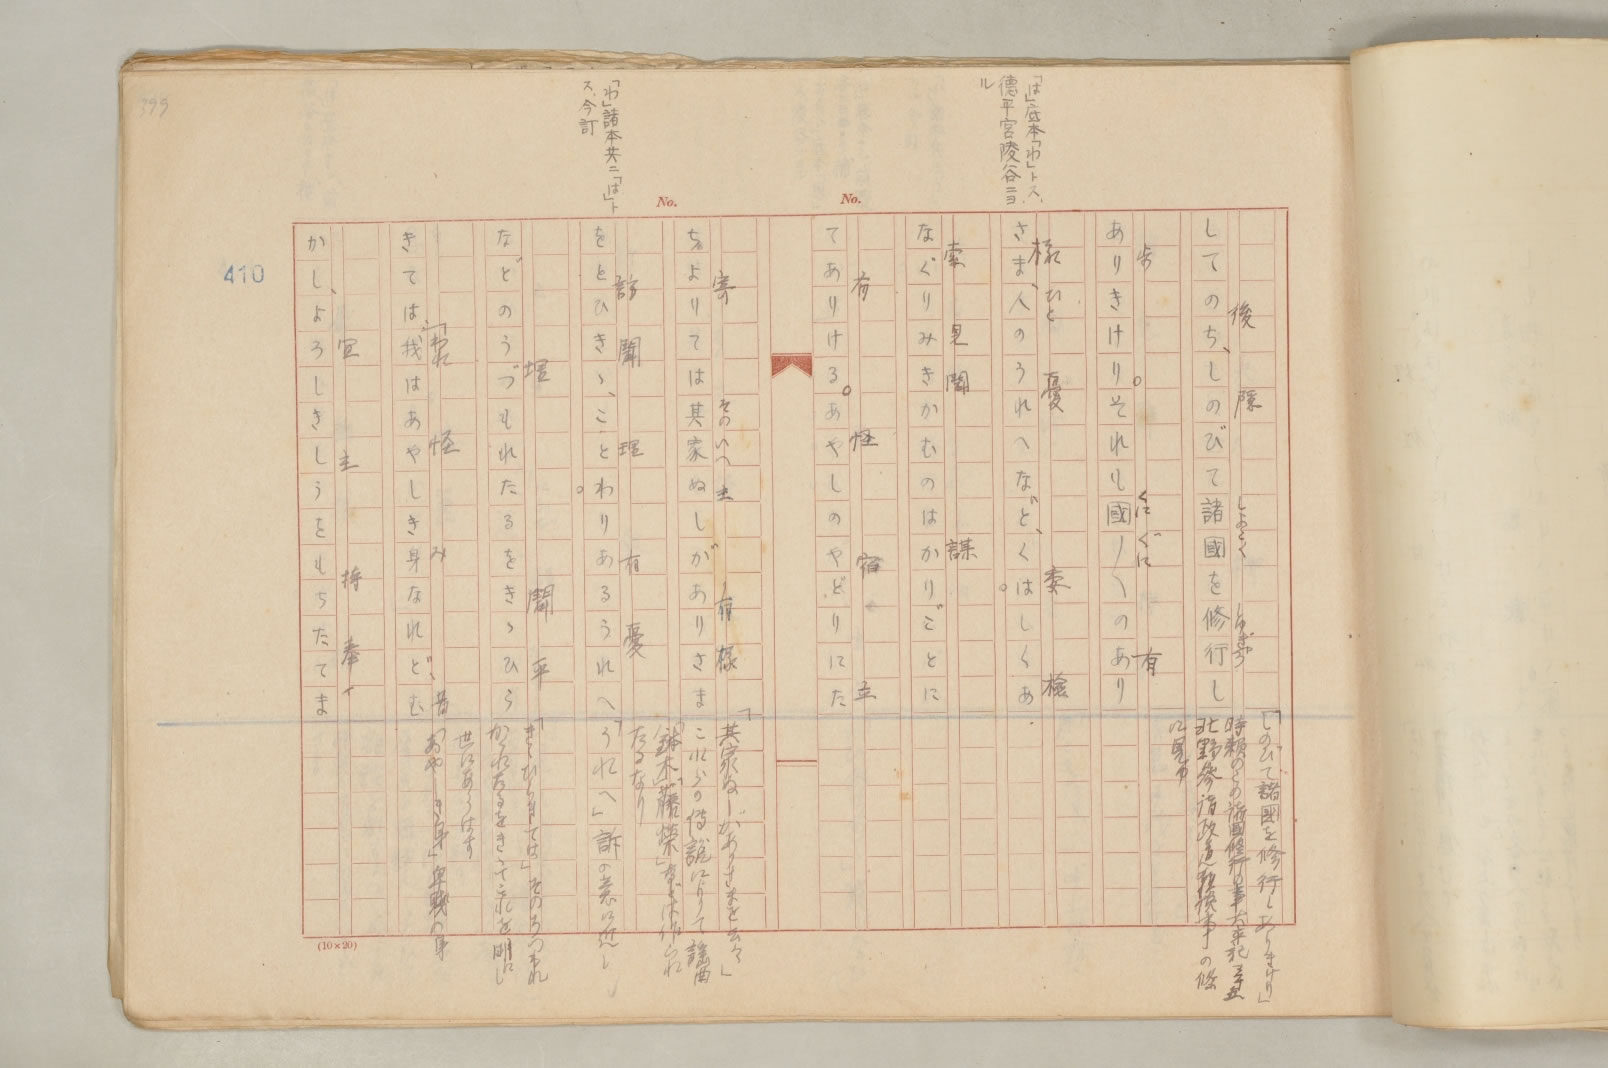 399
410
No.
No.
「は」底本「わ」トス、
德平宮陵谷ニヨ
ル
「わ」諸本共ニ「は」ト
ス、今訂
後 隱 しよこく しゆぎやう
してのち、しのびて諸國を修行し
歩 くにぐに 有
ありきけり。それも國〳〵のあり
樣 ひと 憂 委 檢
さま、人のうれへなど、くはしくあ
索 見 聞 謀
なぐりみきかむのはかりごとに
有 怪 宿 立
てありける。あやしのやどりにた
寄 そのいへ 主 有 樣
ちよりては其家ぬしがありさま
訪 聞 理 有 憂
をとひきゝ、ことわりあるうれへ
埋 聞 平
などのうづもれたるをきゝひら
「われ 怪 み 昔
きては、「我はあやしき身なれど、む
宜 主 持 奉
かし、よろしきしうをもちたてま
「しのびて諸國を修行しありきけり」
時賴のこの諸國修行の事太平記三十五
北野參詣政道雜談事の條
に見ゆ
「其家ぬしがありさまを云々」
これらの傳說によりて謠曲
「鉢木」「藤榮」などは作られ
たるなり
「うれへ」訴の意に近し
「きゝひらきては」そのうづもれ
かくれたるをきゝて之を明にし
世にあらはす
「あやしき身」卑賤の身
(10×20)